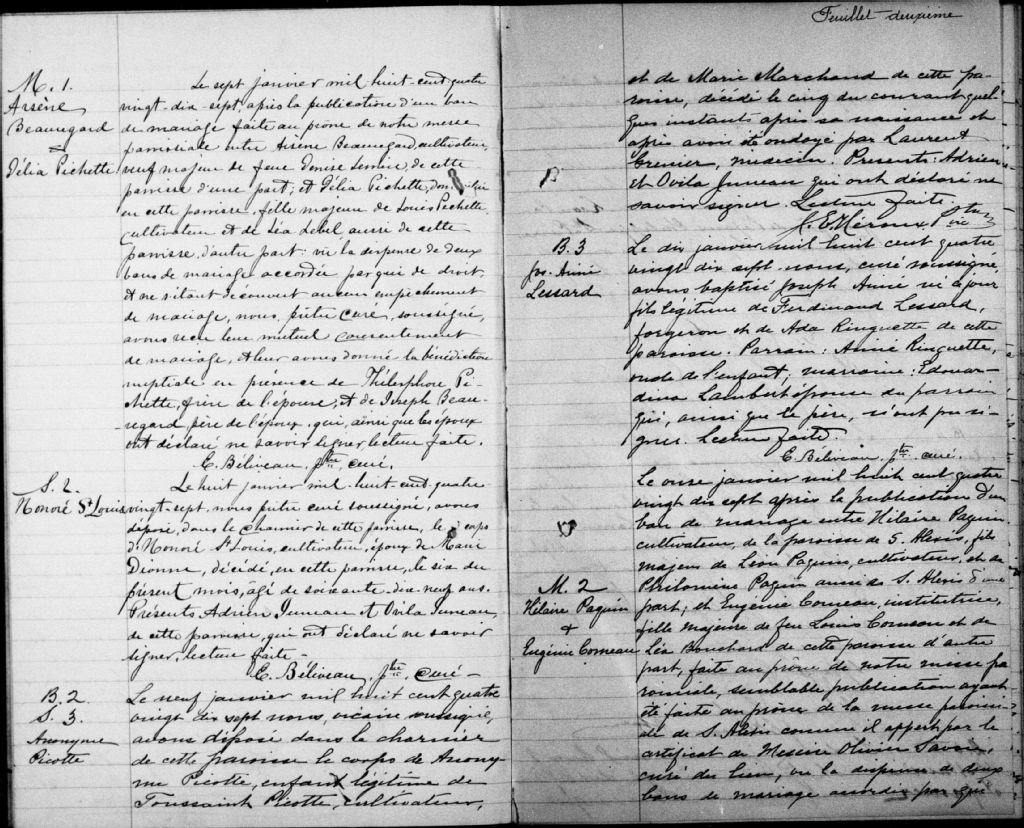 M. 1.
Arsène
Beauregard
&
Délia Pichette
Le sept janvier mil huit-cent quatre
vingt-dix-sept après la publication d'un ban
de mariage faite au prône de notre messe
paroissiale entre Arsène Beauregard, cultivateur,
veuf majeur de feue Denise de cette
paroisse d'une part; et Délia Pichette,
en cette paroisse, fille majeure de Louis Pichette,
cultivateur et de Léa Lebel aussi de cette
paroisse, d'autre part: vu la dispense de deux
bans de mariage accordée par qui de droit,
et ne s'étant découvert aucun empêchement
de mariage, nous, prêtre curé, soussigné,
avons reçu leur mutuel consentement
de mariage, et leur avons donné la bénédiction
nuptiale en présence de Thélesphore Pi-
chette, frère de l'épouse; et de Joseph Beau-
regard père de l'époux, qui, ainsi que les époux
ont déclaré ne savoir signer, lecture faite.
E. Béliveau, ptre curé.
S. 2.
Honoré St Louis
Le huit janvier mil huit-cent-quatre-
vingt-sept, nous prêtre curé soussigné, avons
déposé, dans le charnier de cette paroisse, le corps
d'Honoré St Louis, cultivateur, époux de Marie
Dionne, décédé, en cette paroisse, le six du
présent mois, agé de soixante-dix-neuf ans.
Présents, Adrien Juneau et Ovila Juneau,
de cette paroisse, qui ont déclaré ne savoir
signer, lecture faite-
E. Béliveau, ptre curé-
B. 2.
S. 3.
Anonyme
Picotte
Le neuf janvier mil huit cent quatre
vingt dix sept nous, vicaire soussigné,
avons déposé dans le charnier
de cette paroisse le corps de Anony
me Picotte, enfant légitime de
Toussaint Picotte, cultivateur,
Feuillet deuxième
et de Marie Marchand de cette pa-
roisse, décédé le cinq du courant quel-
ques instants après sa naissance et
après avoir été ondoyé par Laurent
Grenier, médecin. Présents: Adrien
et Ovila Juneau qui ont déclaré ne
savoir signer. Lecture faite.
E. Héroux, Ptre vic
B. 3
Jos. Aimé
Lessard
Le dix janvier mil huit cent quatre
vingt dix sept nous, curé soussigné
avons baptisé Joseph Aimé né ce jour
fils légitime de Ferdinand Lessard,
forgeron et de Ada Ringuette de cette
paroisse. Parrain: Aimé Ringuette,
oncle de l'enfant; marraine: Edouar-
dina Lambert épouse du parrain
qui, ainsi que le père, n'ont pu si-
gner. Lecture faite.
E. Béliveau, ptre curé
M. 2
Hilaire Paquin
+
Eugénie Comeau
Le onze janvier mil huit cent quatre
vingt dix sept après la publication d'un
ban de mariage entre Hilaire Paquin
cultivateur, de la paroisse de S. Alexis, fils
majeur de Léon Paquin, cultivateur, et de
Philomène Paquin aussi de S. Alexis d'une
part; et Eugénie Comeau, institutrice,
fille majeure de feu Louis Comeau et de
Léa Bouchard de cette paroisse d'autre
part, faite au prône de notre messe pa
roissiale, semblable publication ayant
été faite au prône de la messe paroissi
ale de S. Alexis comme il appert par le
certificat de Messire Olivier Savoie,
curé du lieu, vu la dispense de deux
bans de mariage accordée par qui